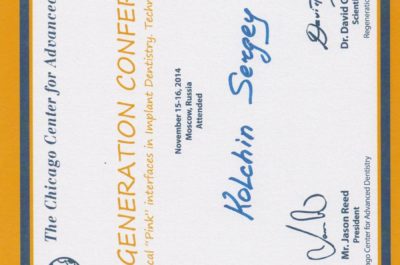 The Chicago Center for Advanced
GENERATION CONFER
cal "Pink" interfaces in Implant Dentistry. Techn
November 15-16, 2014
Moscow, Russia
Attended
Kolchin Sergey
Mr. Jason Reed
President
ago Center for Advanced Dentistry
Dr. David G
Scienti
Regeneration